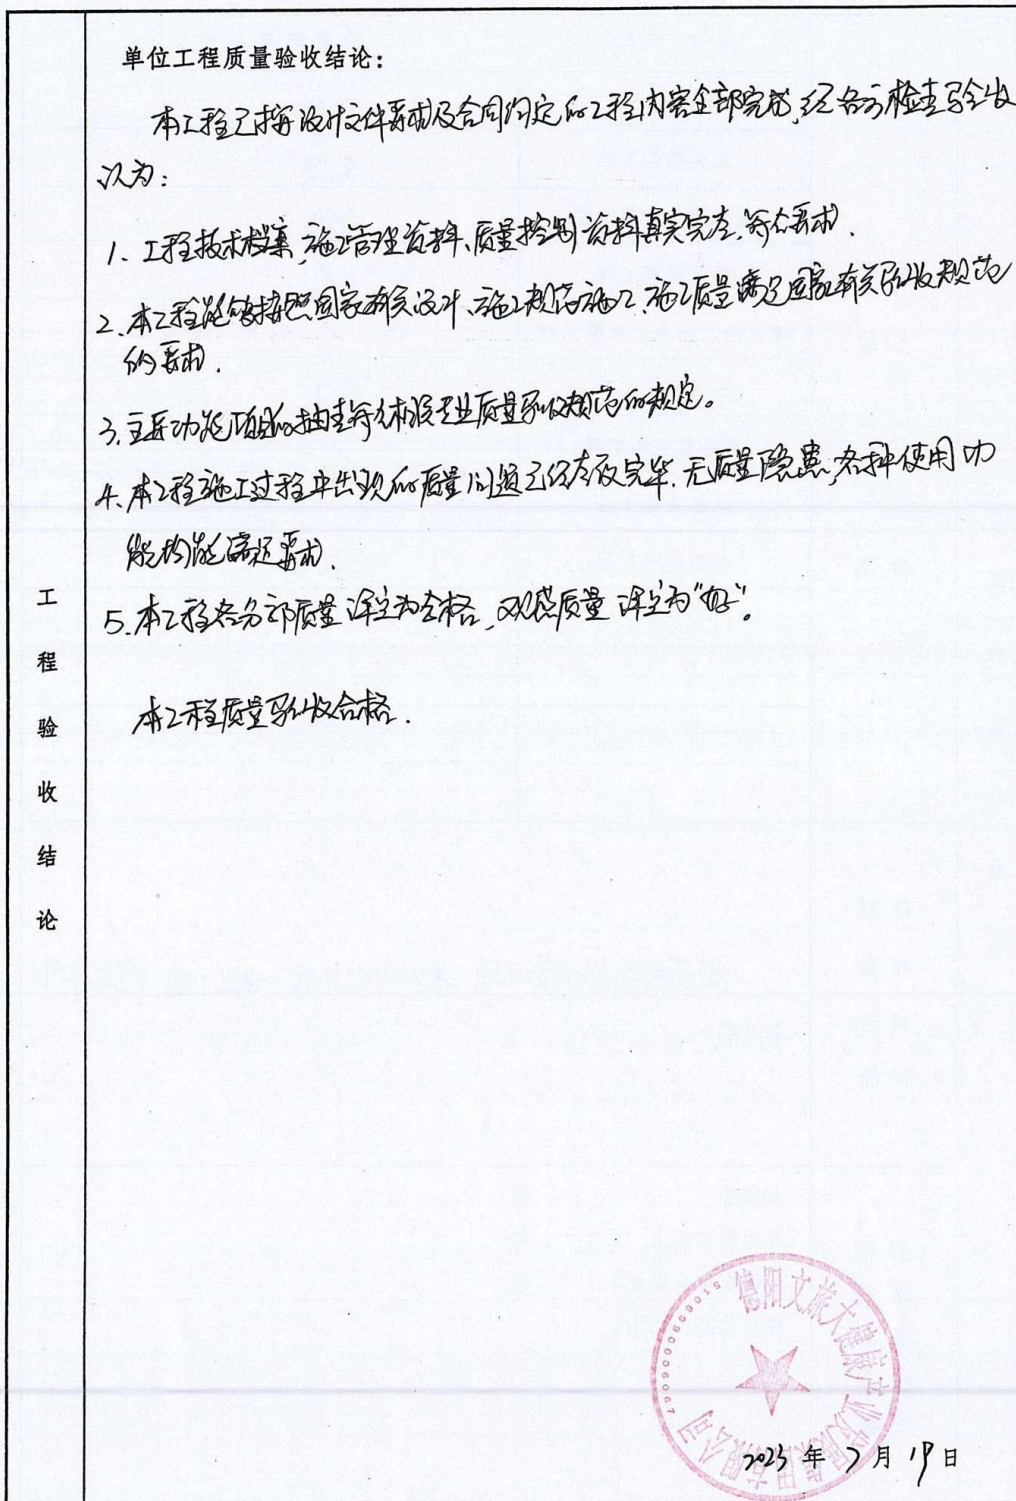 单位工程质量验收结论：
本工程已按设计文件要求及合同约定的工程内容全部完成，经各方检查验收
认为：
1、工程技术档案、施工管理资料、质量控制资料真实完整，符合要求．
2、本工程能够按照国家有关设计、施工规范施工，施工质量满足国家有关验收规范
的要求．
3、主要功能项目的抽查符合相关专业质量验收规范的规定。
4、本工程施工过程中出现的质量问题已经整改完毕．无质量隐患，各种使用功
能均能满足要求．
5、本工程各分部质量评定为合格，观感质量评定为“好”。
本工程质量验收合格．
工程验收结论
德阳文旅大健康产业发展集团有限公司
2023年 月 19日